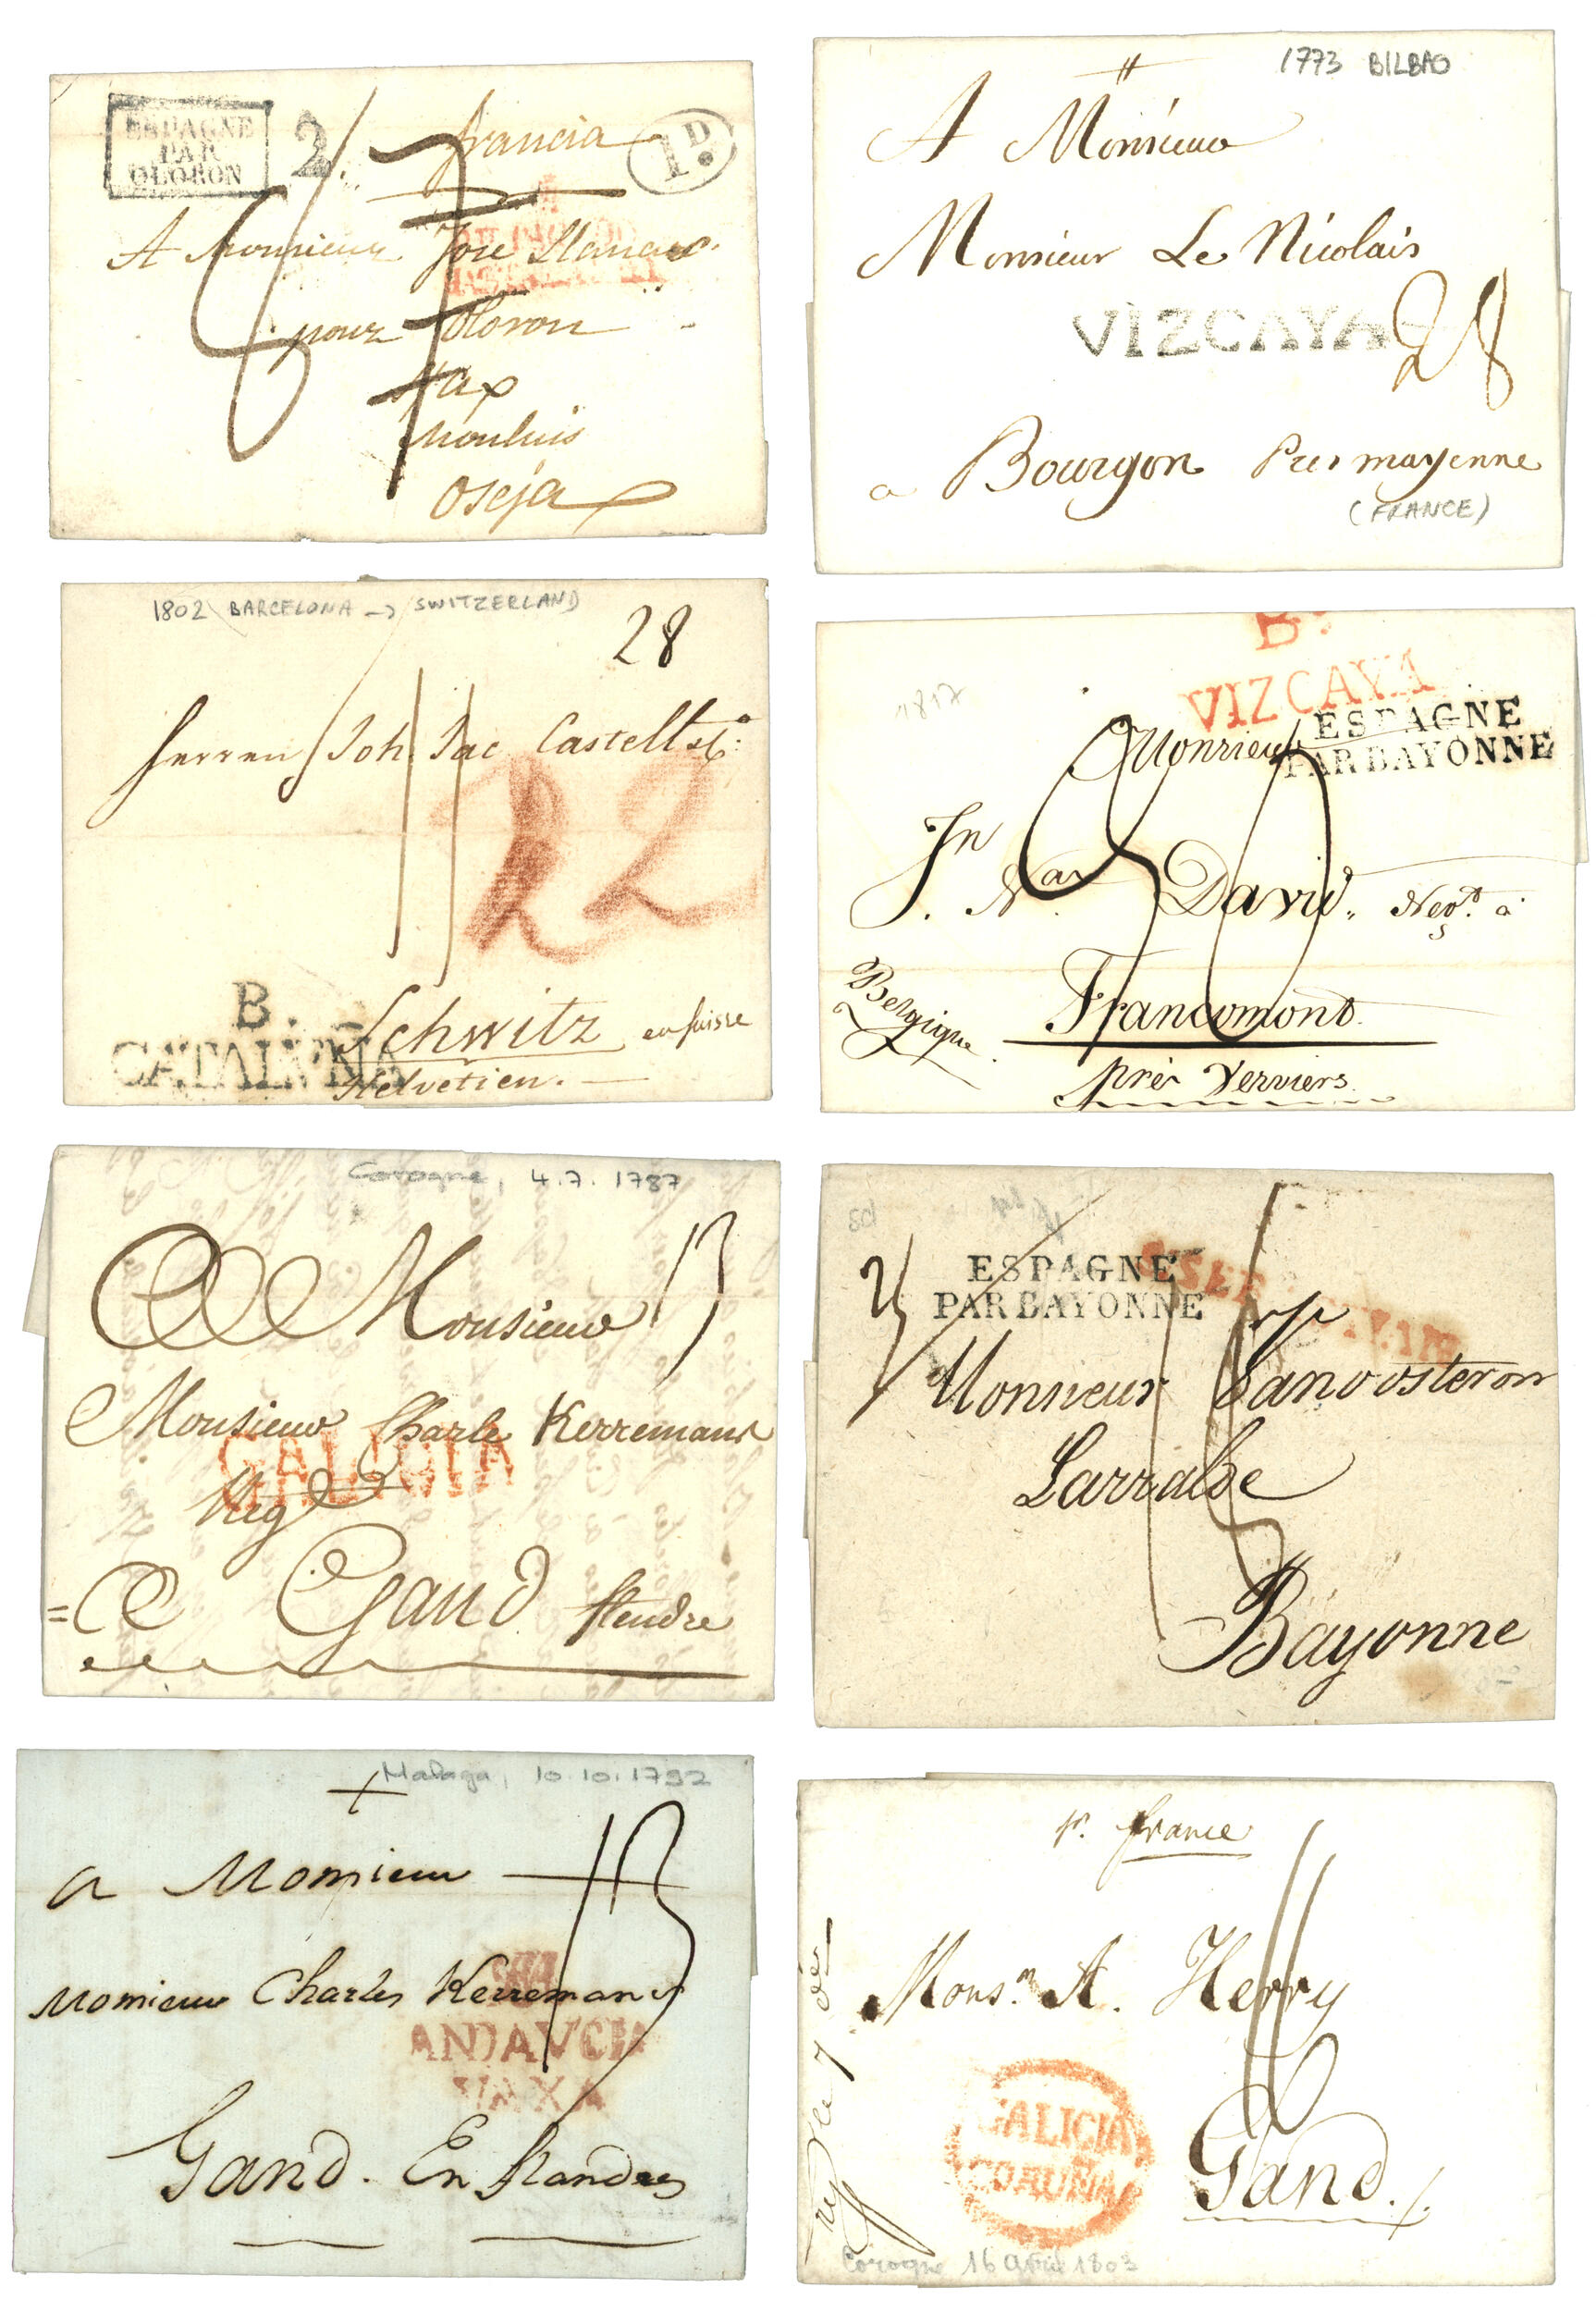 ESPAGNE
PAR
OLORON
2
francia
1D.
A Monsieur Jose
pour Oloron
Oseja
1773 BILBAO
A Monsieur
Monsieur Le Nicolais
VIZCAYA
28
a Bourgon Pres mayenne
(FRANCE)
1802 BARCELONA → SWITZERLAND
28
Herren Joh. Jac Castell
22
B.
CATALVÑA
Schwitz en suisse
Helvetien.
1817
B.
VIZCAYA
ESPAGNE
PAR BAYONNE
Monsieur
Jn
David. Negt. à
Francomont
Belgique
près Verviers
Corogne, 4.7.1787
Monsieur
13
Monsieur Charle Kerremans
GALICIA
Neg
Gand flendre
ESPAGNE
PAR BAYONNE
Monsieur
Larralde
Bayonne
Malaga, 10.10.1792
a Monsieur
13
Monsieur Charles Kerremans
ANDAVCIA
VAXA
Gand. En flandres
pr. france
Monsr. A. Herry
GALICIA
CORUÑA
Gand.
Corogne 16 1803